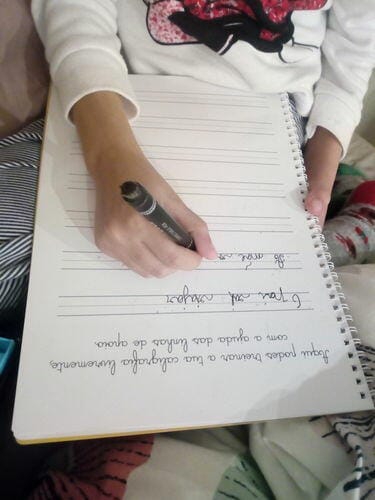 Aqui podes treinar a tua caligrafia livremente,
com a ajuda das linhas de apoio.
O pai vai viajar
A mãe